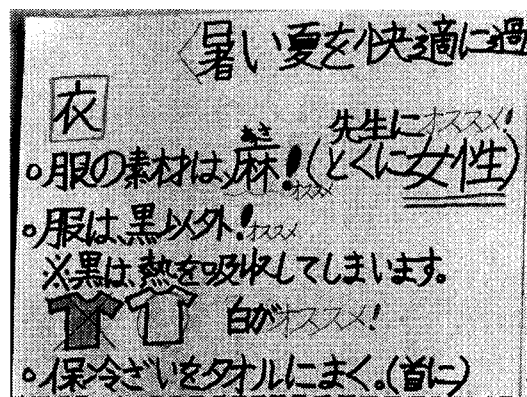 暑い夏を快適に過
衣
先生にオススメ!
あさ
○服の素材は、麻!オススメ(とくに女性)
○服は、黒以外!オススメ
※黒は、熱を吸収してしまいます。
白がオススメ!
○保冷ざいをタオルにまく。(首に)